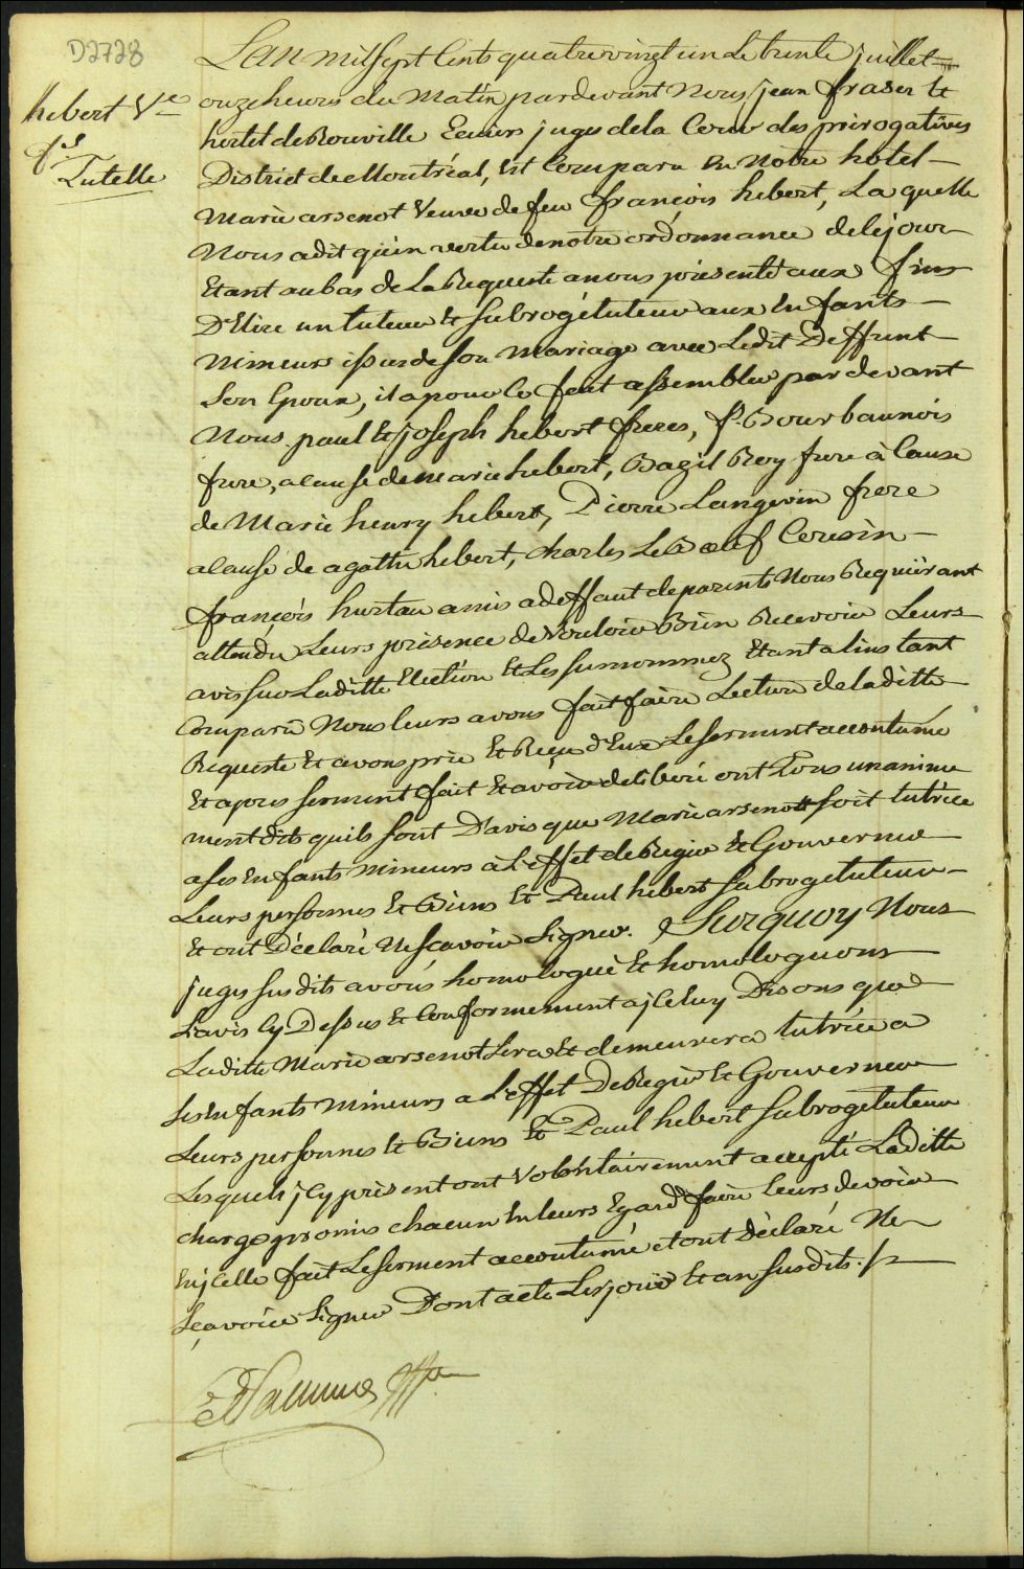 D2728
hebert Ve
fs
Tutelle
Lan mil Sept Cents quatre vingt un Le trente juillet
onze heures du Matin pardevant Nous jean fraser et
hertel de Rouville Ecuiers juges de la Cour des prérogatives
District de Montréal, Est Comparu En Notre hotel
Marie arsenot Veuve de feu françois hebert, La quelle
Nous a dit qu'en vertu de notre ordonnance de le jour
Etant au bas de La Requeste a nous présenté aux fins
D'Elire un tuteur & subrogé tuteur aux Enfants
Mineurs issus de son Mariage avec Ledit Deffunt
Son Epoux, il a pour Ce fait assembler par devant
Nous paul & joseph hebert freres, f. Bourbaunois
frere, a cause de marie hebert, Bazil Roy frere à Cause
de Marie henry hebert, Pierre Langevin frere
a cause de agathe hebert, Charles LeBoeuf Cousin
françois hurtau amis a deffaut de parents Nous Requirant
attendu Leurs présence de Vouloir Bien Recevoir Leurs
avis sur Laditte Election Et Les surnommez Etant a lins tant
Comparu Nous leurs avons fait faire Lecture de laditte
Requeste Et avons pris Et Reçu d'Eux Le serment accoutumé
Et apres serment fait Et avoir deliberé ont Tous unanime
ment dits quils sont D'avis que Marie arsenott soit tutrice
a ses Enfants mineurs à L'effet de Regir & Gouverner
Leurs personnes Et Biens Et Paul hebert subrogetuteur
Et ont Déclaré Ne scavoir Signer. Surquoy Nous
juges susdits avons homologué Et homologuons
L'avis Cy Dessus & Conformement a jCeluy Disons que
Laditte Marie arsenot Sera & demeurera tutrice a
Ses Enfants mineurs a L'effet De Regir & Gouverner
Leurs personnes & Biens & Paul hebert subrogetuteur
Lesquels jCy présent ont Volontairement accepté Laditte
charge promis chacun En leurs Egard faire leurs devoir
En jCelle fait Le serment accoutumé et ont Déclaré Ne
Sçavoir Signer Dont acte Les jour Et an susdits